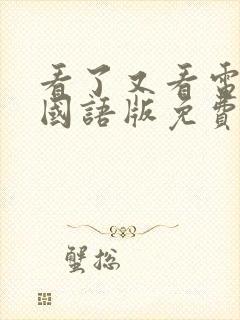 看了又看電
國語版免費
蟹总